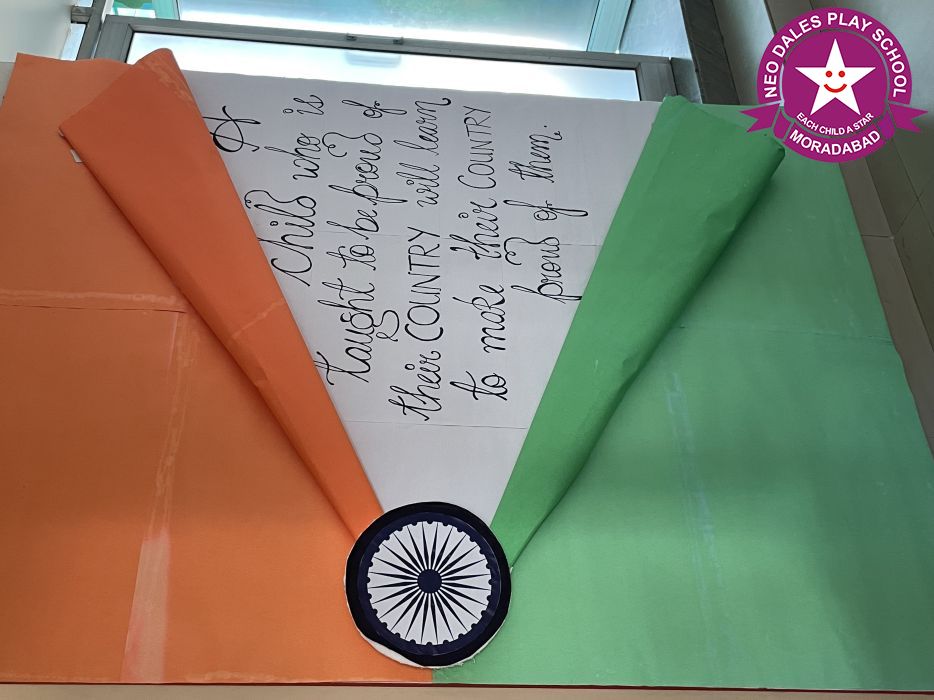 A
Child who is
taught to be proud of
their COUNTRY will learn
to make their COUNTRY
proud of them.
NEO DALES PLAY SCHOOL
EACH CHILD A STAR
MORADABAD